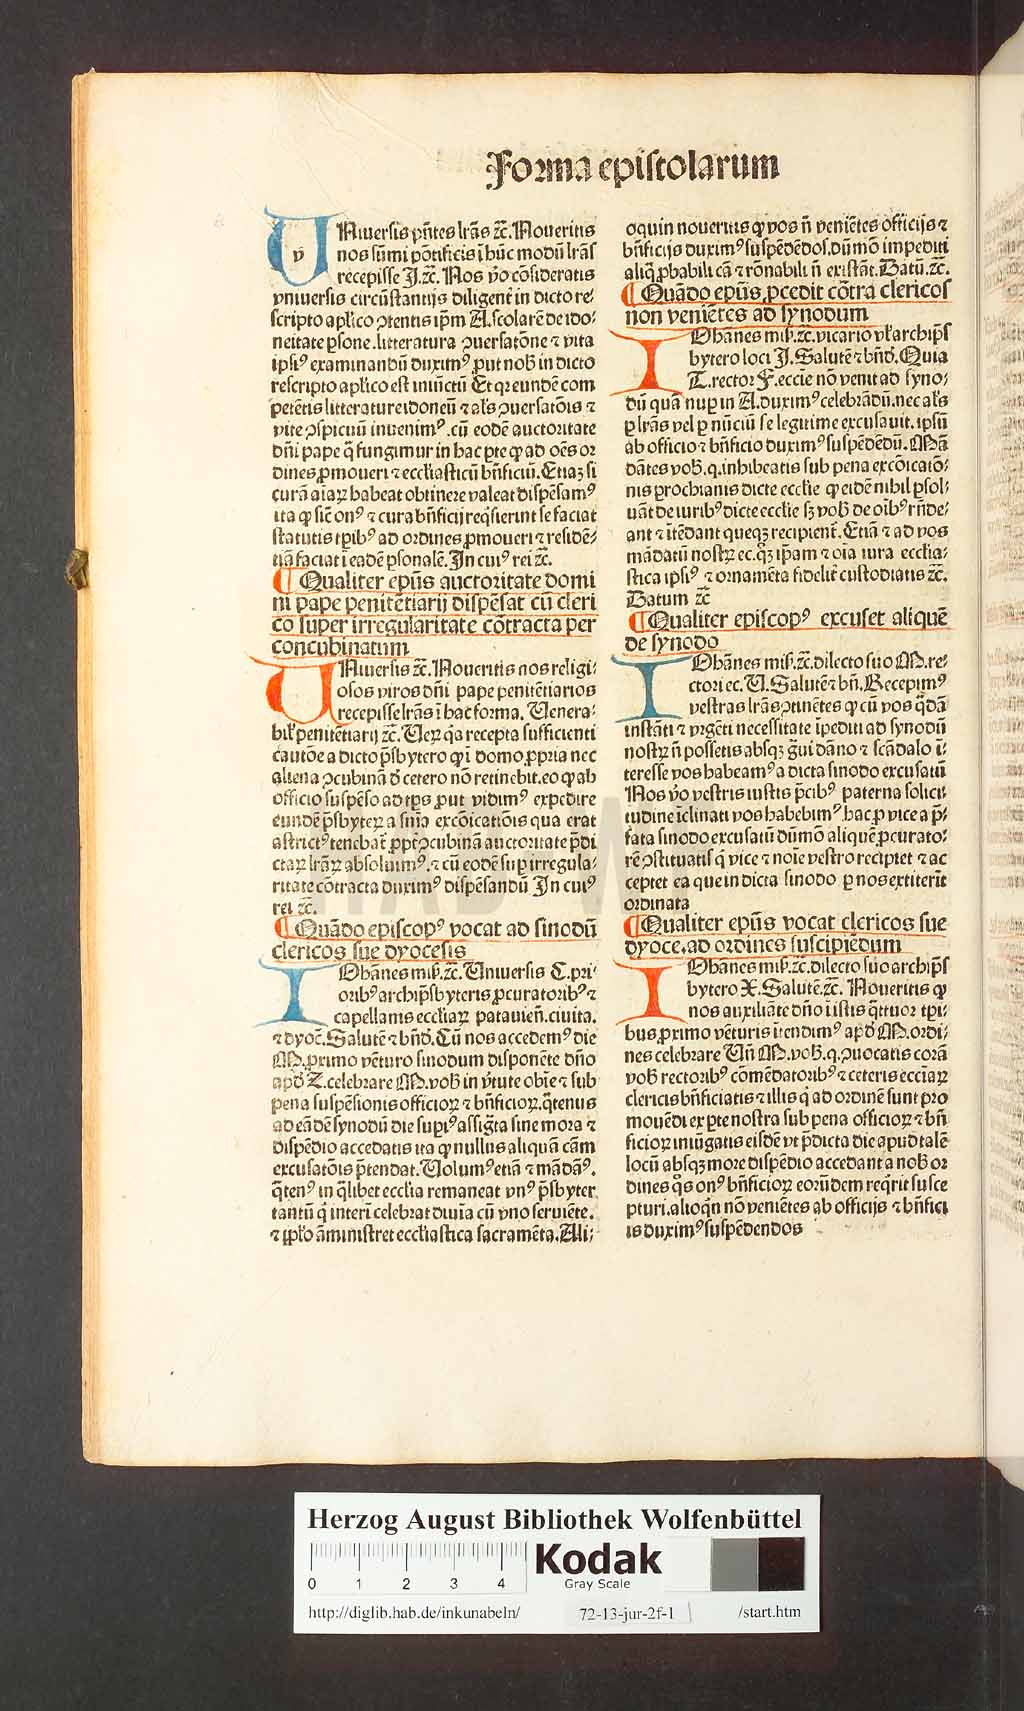 Forma epistolarum
UNiuersis p̄ntes lr̄as ⁊c̄. Noueritis
nos sūmi pōntificis ī hūc modū lr̄as
recepisse J. ⁊c̄. Nos v̊o cōsideratis
vniuersis circūstantijs diligent̄ in dicto re⸗
scripto ap̄lico ꝯtentis ip̄m A. scolarē de ido⸗
neitate ꝑsone. litteratura ꝯuersatōne ⁊ vita
ipsiꝰ examinandū duximꝰ ꝓut nob̄ in dicto
rescripto ap̄lico est iniūctū Et qꝛ eundē com
petētis litterature idoneū ⁊ al̄s ꝯuersatōis ⁊
vite ꝯspicuū inuenimꝰ. cū eodē auctoritate
dn̄i pape q̄ fungimur in hac ꝑte ꝙ ad oēs or
dines ꝓmoueri ⁊ eccl̄iasticū bn̄ficiū. Etiaꝫ si
curā aīaꝝ habeat obtinere valeat dispēsamꝰ
ita ꝙ sic̄ onꝰ ⁊ cura bn̄ficij reqͥsierint se faciat
statutis tp̄ibꝰ ad ordines ꝓmoueri ⁊ residē⸗
tiā faciat ī eadē ꝑsonalē. In cuiꝰ rei ⁊c̄.
¶ Qualiter ep̄us auctoritate domi
ni pape penitētiarij dispēsat cū cleri
co super irregularitate cōtracta per
concubinatum
UNiuersis ⁊c̄. Noueritis nos religi⸗
osos viros dn̄i pape penitētiarios
recepisse lr̄as ī hac forma. Uenera⸗
bil̓ penitētiarij ⁊c̄. Ueꝝ qꝛ recepta sufficienti
cautōe a dicto p̄sbytero ꝙ ī domo ꝓpria nec
aliena ꝯcubinā d̄ cetero nō retinebit. eo ꝙ ab
officio suspēso ad tp̄s ꝓut vidimꝰ expedire
eundē p̄sbyteꝝ a sn̄ia excōicatiōis qua erat
astrictꝰ tenebat̄ ꝓpt̄ ꝯcubinā auctoritate p̄di
ctaꝝ lr̄aꝝ absoluimꝰ. ⁊ cū eodē suꝑ irregula⸗
ritate cōtracta duximꝰ dispēsandū In cuiꝰ
rei ⁊c̄.
¶ Quādo episcopꝰ vocat ad sinodū
clericos sue dyocesis
IOhānes mis̄. ⁊c̄. Uniuersis C. pri⸗
oribꝰ archip̄sbyteris ꝓcuratoribꝰ ⁊
capellanis eccl̄iaꝝ patauieñ. ciuita.
⁊ dyoc̄. Salutē ⁊ bn̄d̄. Cū nos accedemꝰ die
M. ꝓximo vēturo sinodum disponēte dn̄o
apd̄ Z. celebrare M. vob̄ in v̓tute obīe ⁊ sub
pena suspēsionis officioꝝ ⁊ bn̄ficioꝝ. q̄tenus
ad eādē synodū die suꝑiꝰ assigta sine mora ⁊
dispēdio accedatis ita ꝙ nullus aliquā cām
excusatōis p̄tendat. Uolumꝰ etiā ⁊ mādāꝰ.
q̄tenꝰ in q̄libet eccl̄ia remaneat vnꝰ p̄sbyter
tantū qͥ interī celebrat diuīa cū vno seruiēte.
⁊ pplo āministret eccl̄iastica sacramēta. Ali⸗
oquin noueritis ꝙ vos n̄ veniētes officijs ⁊
bn̄ficijs duximꝰ suspēdēdos. dūmō impediti
aliq̄ ꝓbabili cā ⁊ rōnabili n̄ existāt. Datū. ⁊c̄.
¶ Quādo ep̄us ꝓcedit cōtra clericos
non veniētes ad synodum
IOhānes mis̄. ⁊c̄. vicario vl̓ archip̄s
bytero loci J. Salutē ⁊ bn̄d̄. Quia
T. rector F. eccīe nō venit ad syno⸗
dū quā nuꝑ in A. duximꝰ celebrādū. nec al̄s
ꝑ lr̄as vel ꝑ nūciū se legitime excusauit. ipsū
ab officio ⁊ bn̄ficio duximꝰ suspēdēdū. Mā
dātes vob̄. q. inhibeatis sub pena excōicatō⸗
nis ꝑrochianis dicte eccl̄ie ꝙ eidē nihil ꝑsol⸗
uāt de iuribꝰ dicte eccl̄ie sꝫ vob̄ de oīb̓ rn̄de⸗
ant ⁊ ītēdant queqꝫ recipient̄. Etiā ⁊ ad vos
mādatū nostꝝ ec. q̄ꝫ ip̄am ⁊ oīa iura eccl̄ia⸗
stica ipsiꝰ ⁊ ornamēta fidelit̄ custodiatis ⁊c̄.
Datum ⁊c̄
¶ Qualiter episcopꝰ excuset aliquē
de synodo
IOhānes mis̄. ⁊c̄. dilecto suo M. re⸗
ctori ec. U. Salutē ⁊ bn̄. Recepimꝰ
vestras lr̄as ꝯtinētes ꝙ cū vos q̄dā
instāti ⁊ vrgēti necessitate īpediti ad synodū
nostꝝ n̄ possetis absqꝫ g̃ui dāno ⁊ scādalo ī⸗
teresse vos habeamꝰ a dicta sinodo excusatū
Nos v̊o vestris iustis p̄cibꝰ paterna solicit
tudine īclinati vos habebimꝰ. hac ꝓ vice a p̄⸗
fata sinodo excusatū dūmō aliquē ꝓcurato⸗
rē ꝯstituatis qͥ vice ⁊ noīe vestro recipiet ⁊ ac
ceptet ea que in dicta sinodo ꝑ nos extiterīt
ordinata
¶ Qualiter ep̄us vocat clericos sue
dyoce. ad ordines suscipiēdum
IOhānes mis̄. ⁊c̄. dilecto suo archip̄s
bytero X. Salutē. ⁊c̄. Noueritis ꝙ
nos auxiliāte dn̄o ī istis q̄ttuor tp̄i⸗
bus ꝓximo vēturis ītendimꝰ apd̄ M. ordi⸗
nes celebrare Un̄ M. vob̄. q. ꝯuocatis corā
vob̄ rectoribꝰ cōmēdatoribꝰ ⁊ ceteris eccīaꝝ
clericis bn̄ficiatis ⁊ illis qͥ ad ordinē sunt pro
mouēdi ex ꝑte nostra sub pena officioꝝ ⁊ bn̄
ficioꝝ iniūgatis eisdē vt p̄dicta die apud talē
locū absqꝫ more dispēdio accedant a nob̄ or
dines qͦs onꝰ bn̄ficioꝝ eorūdem req̄rit susce
pturi. alioqͥn nō veniētes ab officijs ⁊ bn̄fici
is duximꝰ suspēdendos
Herzog August Bibliothek Wolfenbüttel
0 1 2 3 4
Kodak
Gray Scale
http://diglib.hab.de/inkunabeln/ 72-13-jur-2f-1 /start.htm